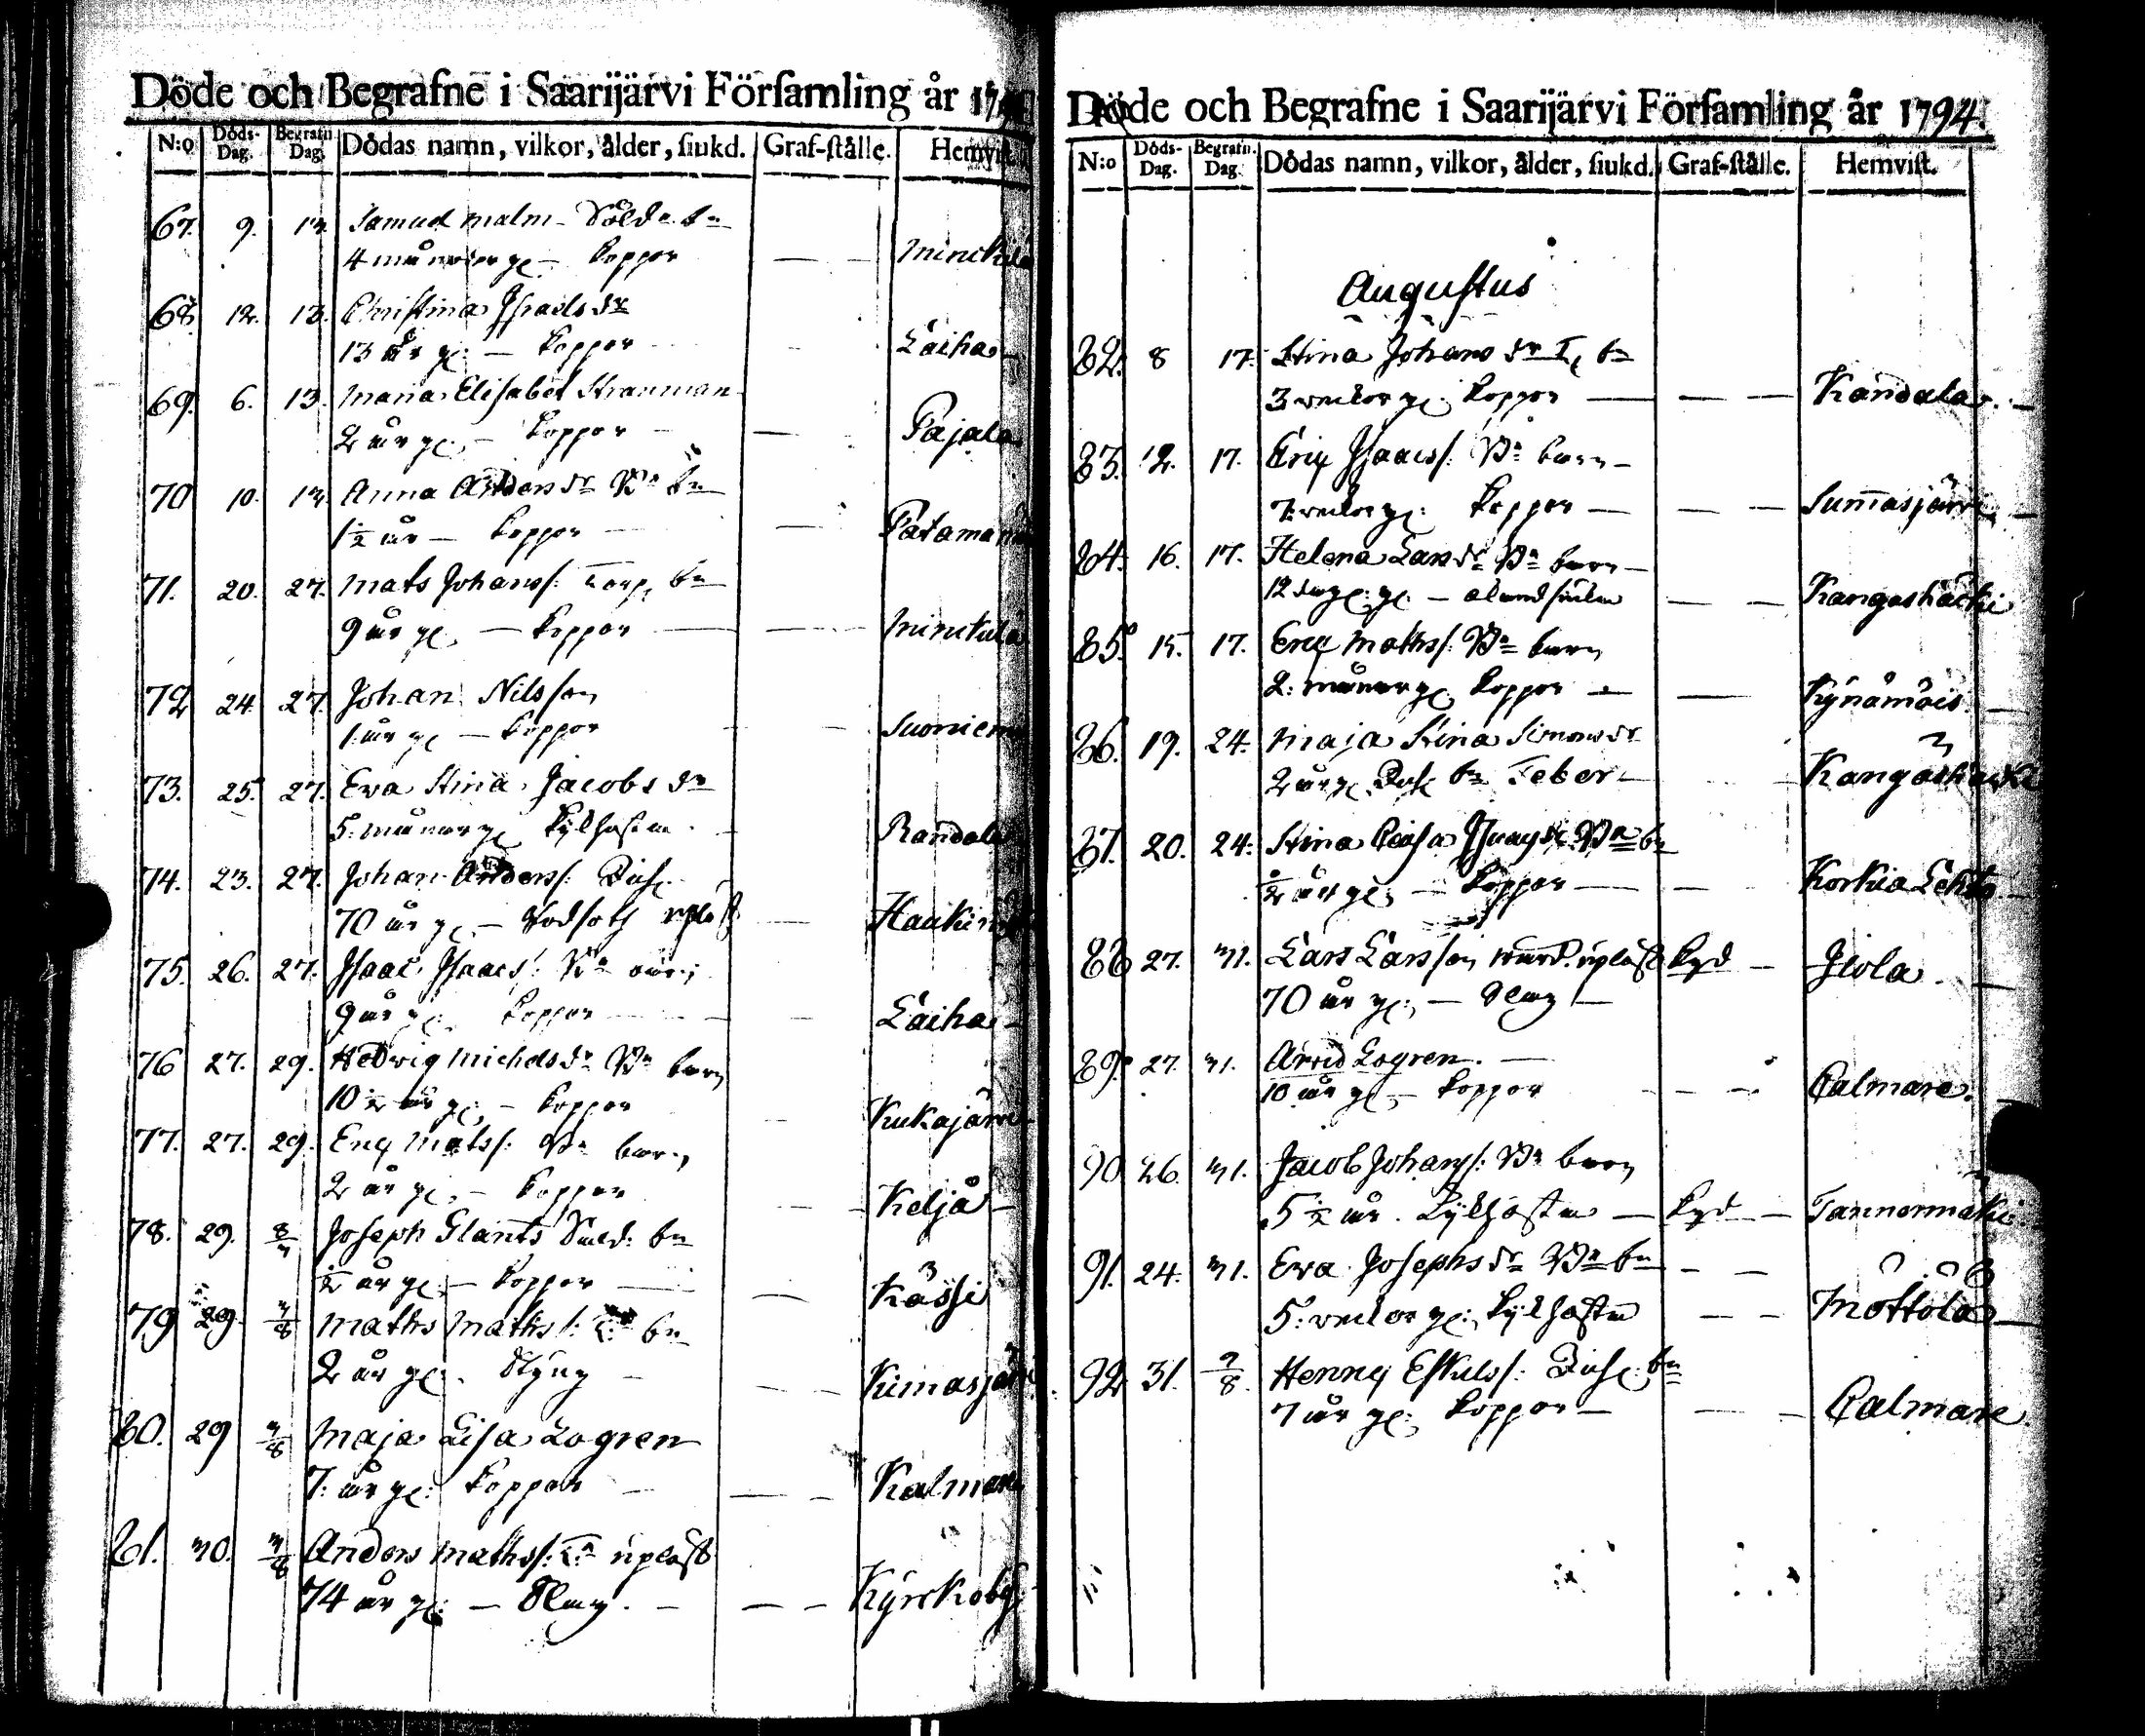 Döde och Begrafne i Saarijärvi Församling år 1794
N:o Döds-Dag. Begrafn. Dag. Dödas namn, vilkor, ålder, siukd. Graf-ställe. Hemvist.
67. 9. 13. Samuel Malm Sold. bn
4 månader gl. – koppor — — Minckila
68 12. 13. Christina Israelsdr
13 år gl. – koppor Laiha
69. 6. 13. Maria Elisabet Stranman
2 år gl. – koppor — Pajala
70 10. 13. Anna Andersdr Bn bn
1 1/2 år – koppor — Patama
71. 20. 27. Mats Johanss: Torp. bn
9 år gl. – koppor — Minckila
72 24. 27. Johan Nilsson
1 år gl. – koppor Suoniem
73. 25. 27. Eva Stina Jacobsdr
5. månar gl. kikhostan Randala
74. 23. 27. Johan Anderss: Inh.
70 år gl. – Rodsoth Haukin
75. 26. 27. Isaac Isaacs: Bn
9 år gl. koppor — Laiha
76 27. 29. Hedwig Michelsdr Bn barn
10 1/2 år gl. – koppor Kukajärvi
77. 27. 29. Eric Matss: Bn barn
2 år gl. – koppor Keljå
78. 29. 3/8 Joseph Glants Sold: bn
1/2 år gl. – koppor — Kässi
79 29. 3/8 Maths Mathss: bn
2 år gl. Styng Kimasjärvi
80. 29 3/8 Maja Lisa Logren
7: år gl: koppor — Kalmare
81. 30. 3/8 Anders Mathss: uplåst
74 år gl: – Slag. — Kyrckoby
Döde och Begrafne i Saarijärvi Församling år 1794.
N:o Döds-Dag. Begrafn. Dag. Dödas namn, vilkor, ålder, siukd. Graf-ställe. Hemvist.
Augustus
82. 8 17. Stina Johansdr T. bn
3 veckor gl. koppor — Kandala
83. 12. 17. Eric Isaacs: Bn barn
7. veckor gl: koppor — Summasjärvi
84. 16. 17. Helena Larsdr Bn barn
12 dag: gl: – okend siukd Kangashäcki
85. 15. 17. Eric Mathss: Bn barn
2: månar gl. koppor — Kynämöis
86. 19. 24. Maja Stina Simonsdr
2 år gl. Inh. bn Feber – Kangashäcki
87. 20. 24. Stina Caisa Bn bn
1/2 år gl. – koppor — Korkia Lehto
88 27. 31. Lars Larsson uplåst kyd – Jiola
70 år gl: – Slag –
89. 27. 31. Arvid Logren. —
10 år gl. – koppor — Calmare.
90 26. 31. Jacob Johanss: Bn barn
5 1/2 år. Kikhostan — kyd – Tannermäki
91. 24. 31. Eva Josephsdr Bn bn — —
5: veckor gl: kikhostan — — Möttölä
92 31. 7/8. Henric Eskelss: Inh. bn
7 år gl: koppor – Calmare.